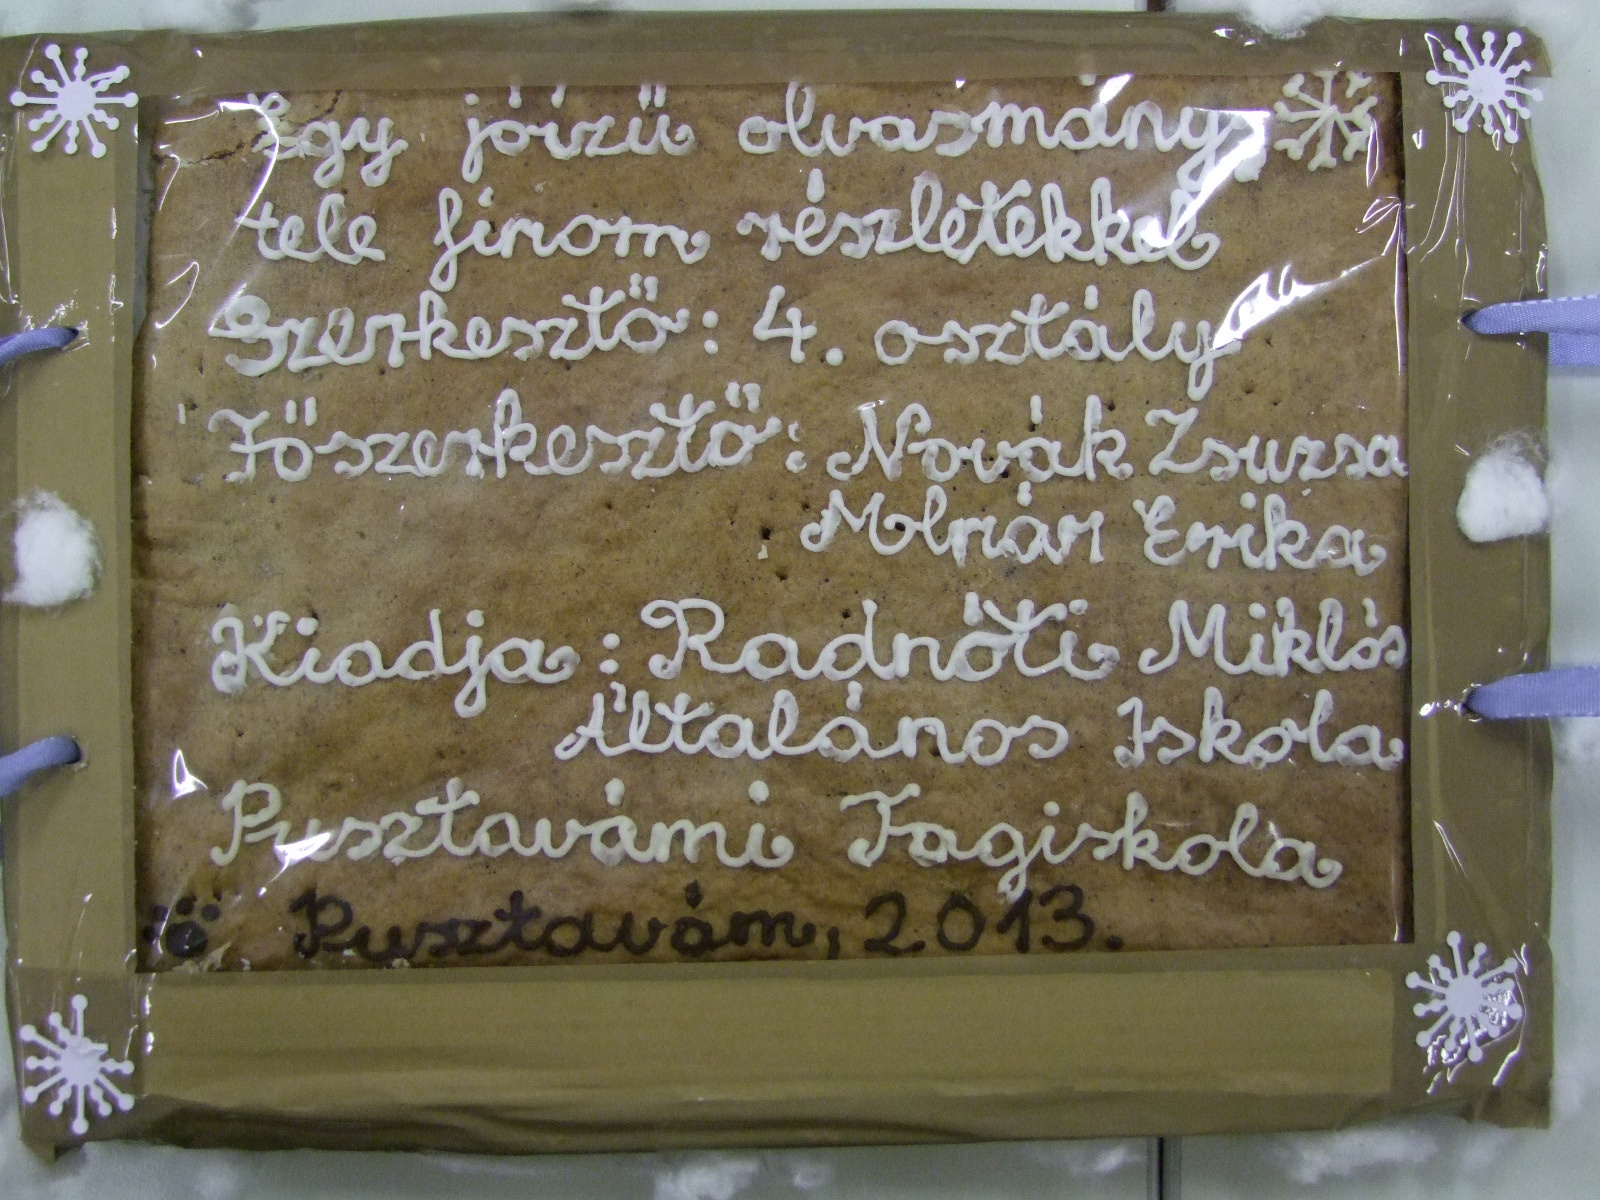 Egy jóízű olvasmány,
tele finom részletekkel
Szerkesztő: 4. osztály
Főszerkesztő: Novák Zsuzsa
Molnár Erika
Kiadja: Radnóti Miklós
Általános Iskola
Pusztavámi Tagiskola
Pusztavám, 2013.